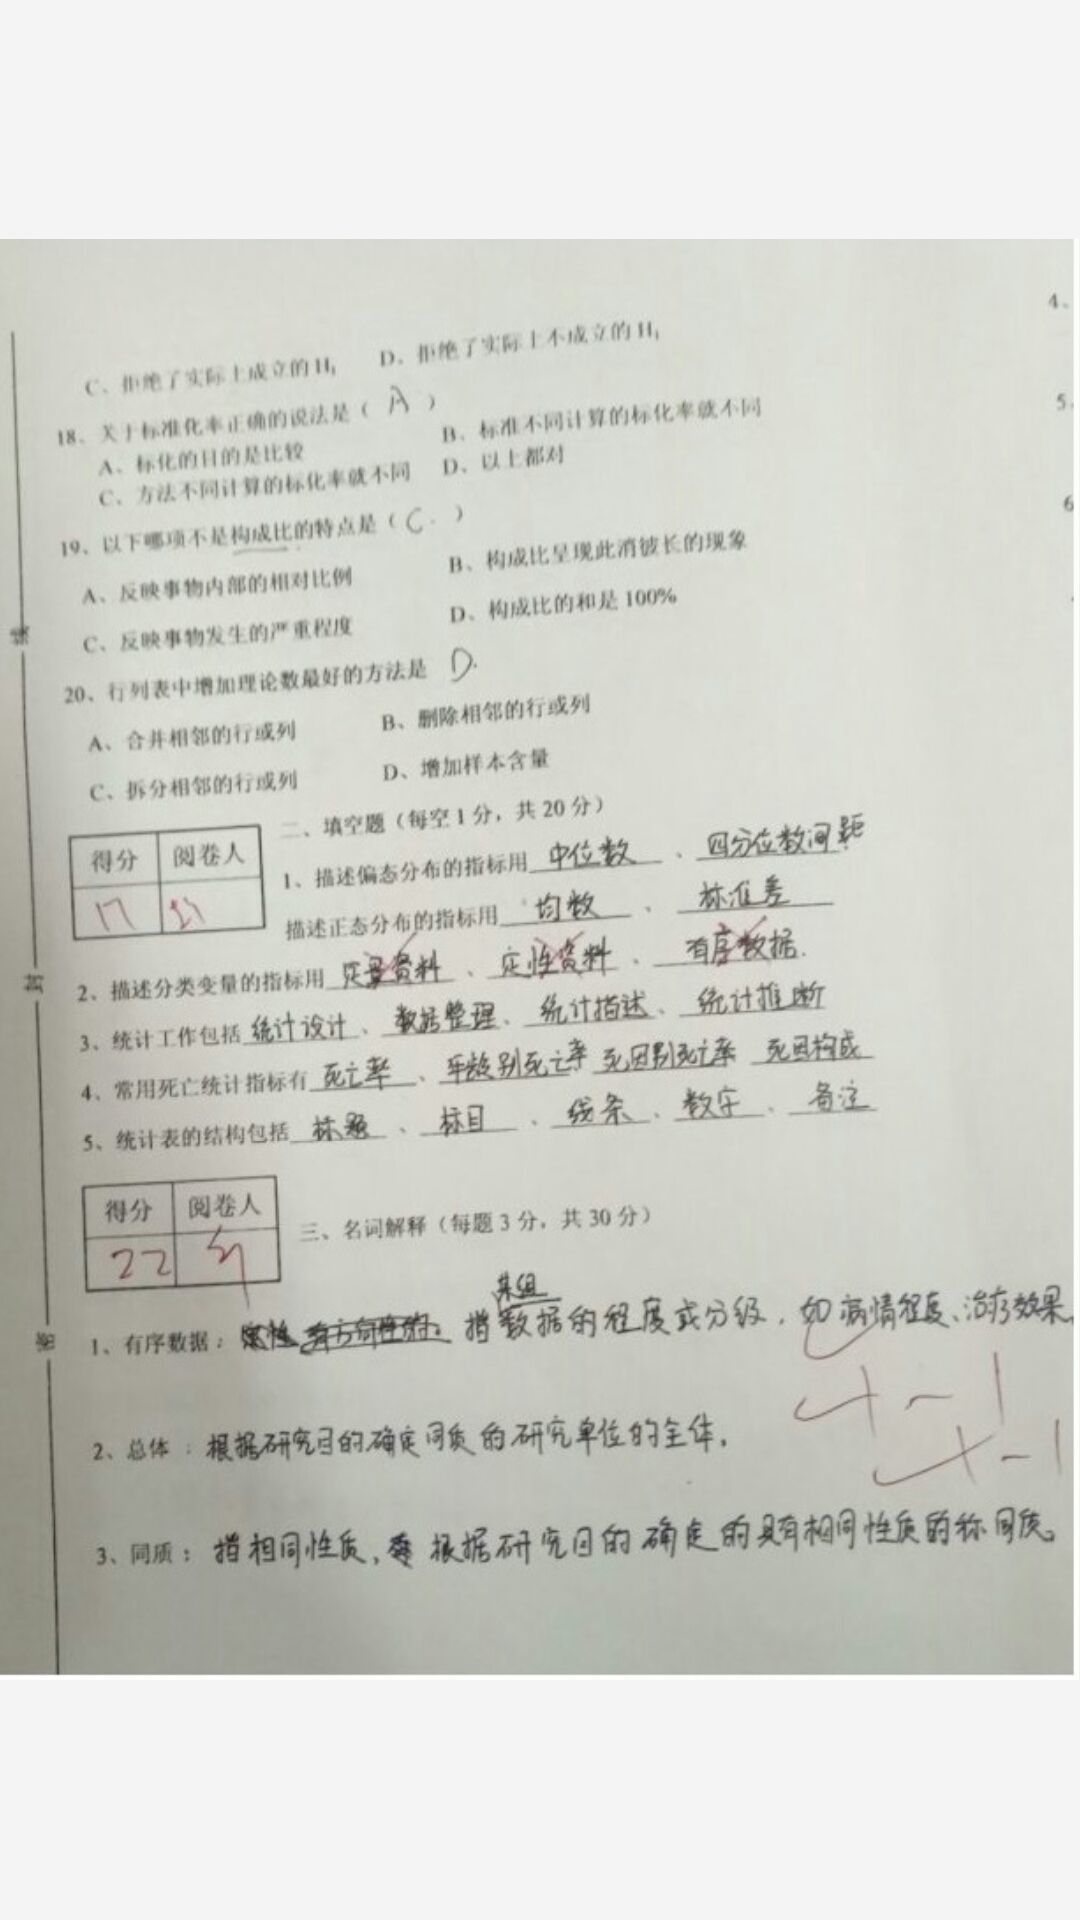 4、
C、拒绝了实际上成立的 H₁ D、拒绝了实际上不成立的 H₁
18、关于标准化率正确的说法是（ A ）
5、
A、标化的目的是比较 B、标准不同计算的标化率就不同
C、方法不同计算的标化率就不同 D、以上都对
19、以下哪项不是构成比的特点是（ C. ）
6
A、反映事物内部的相对比例 B、构成比呈现此消彼长的现象
C、反映事物发生的严重程度 D、构成比的和是 100%
20、行列表中增加理论数最好的方法是 D.
A、合并相邻的行或列 B、删除相邻的行或列
C、拆分相邻的行或列 D、增加样本含量
得分 阅卷人
17
二、填空题（每空 1 分，共 20 分）
1、描述偏态分布的指标用 中位数 、 四分位数间距
描述正态分布的指标用 均数 、 标准差
2、描述分类变量的指标用 定量资料 、 定性资料 、 有序数据.
3、统计工作包括 统计设计 、 数据整理 、 统计描述 、 统计推断
4、常用死亡统计指标有 死亡率 、 年龄别死亡率 死因别死亡率 死因构成
5、统计表的结构包括 标题 、 标目 、 线条 、 数字 、 备注
得分 阅卷人
22
三、名词解释（每题 3 分，共 30 分）
某组
1、有序数据： 指数据的程度或分级，如病情程度、治疗效果
-1
2、总体 ：根据研究目的确定同质的研究单位的全体。
-1
3、同质：指相同性质， 根据研究目的确定的具有相同性质的称同质。
密